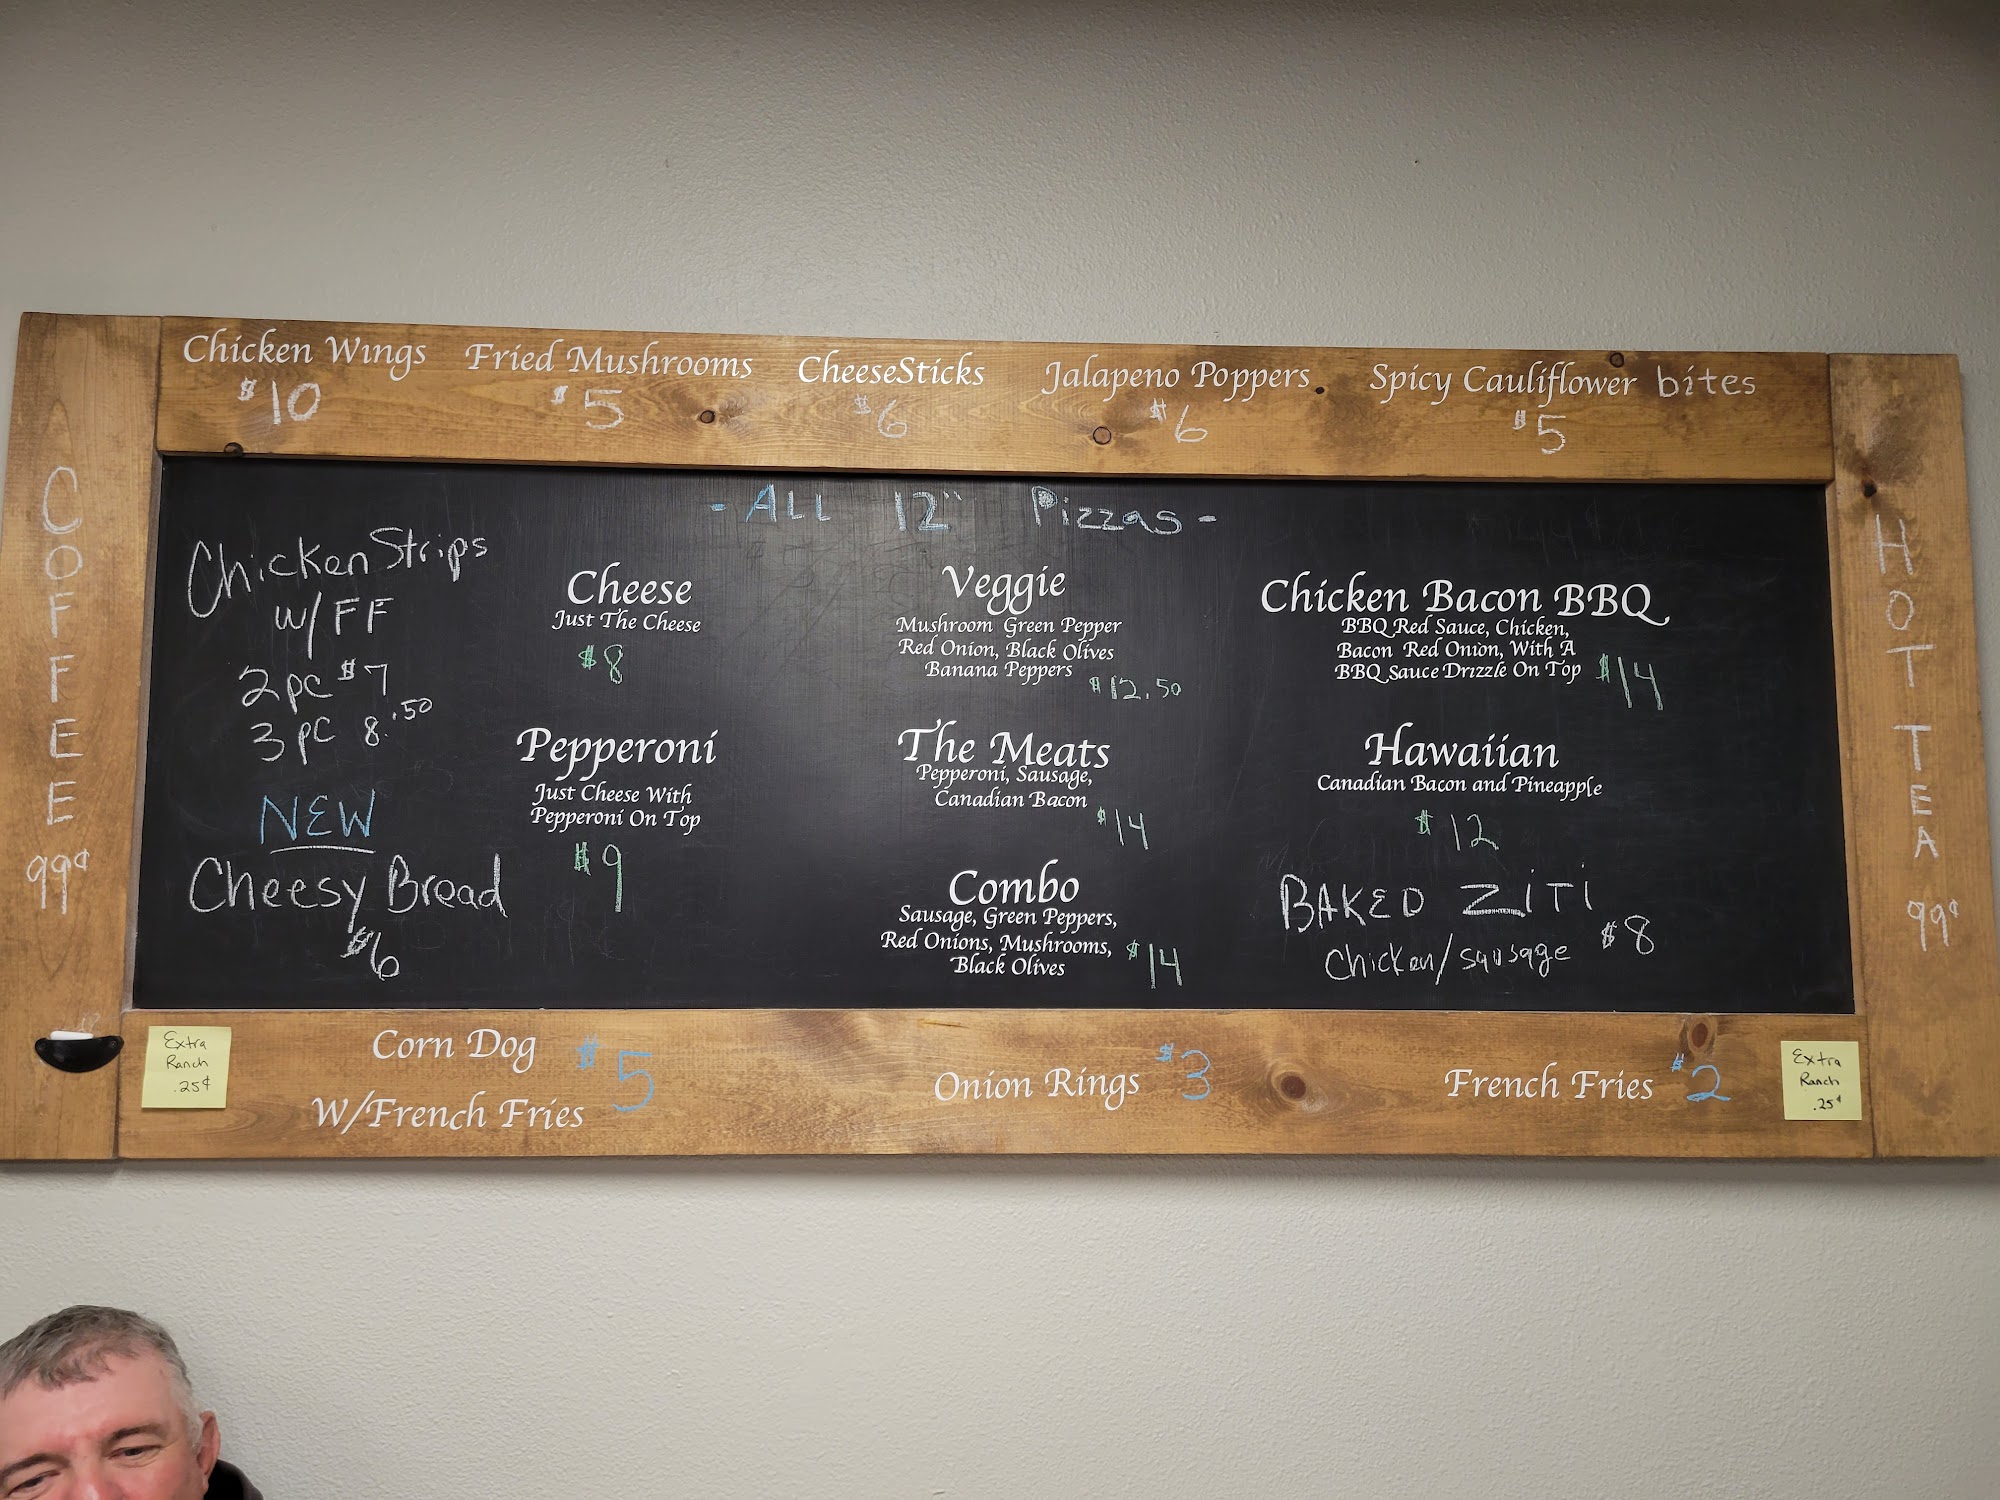 Chicken Wings
$10
Fried Mushrooms
$5
CheeseSticks
$6
Jalapeno Poppers
$6
Spicy Cauliflower bites
$5
COFFEE 99¢
- ALL 12" Pizzas -
Chicken Strips
w/FF
2pc $7
3pc 8.50
NEW
Cheesy Bread
$6
Cheese
Just The Cheese
$8
Pepperoni
Just Cheese With
Pepperoni On Top
$9
Veggie
Mushroom Green Pepper
Red Onion, Black Olives
Banana Peppers
$12.50
The Meats
Pepperoni, Sausage,
Canadian Bacon
$14
Combo
Sausage, Green Peppers,
Red Onions, Mushrooms,
Black Olives
$14
Chicken Bacon BBQ
BBQ Red Sauce, Chicken,
Bacon Red Onion, With A
BBQ Sauce Drizzle On Top
$14
Hawaiian
Canadian Bacon and Pineapple
$12
BAKED ZiTi
Chicken/sausage $8
HOT TEA 99¢
Extra
Ranch
.25¢
Corn Dog
W/French Fries
$5
Onion Rings $3
French Fries $2
Extra
Ranch
.25¢